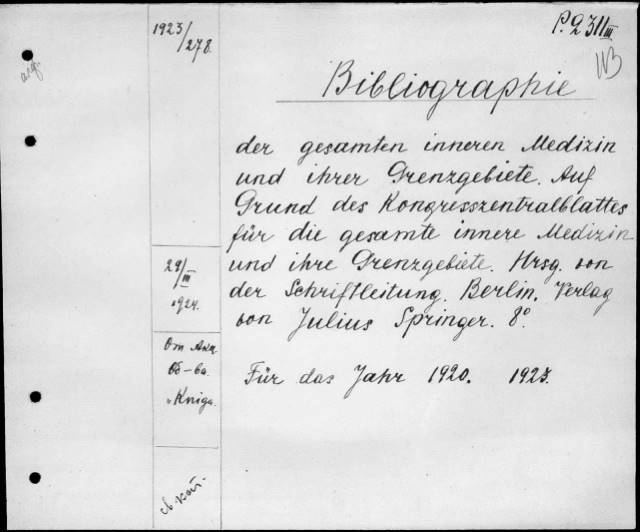 1923/278
P. 2311 III
Bibliographie
der gesamten inneren Medizin
und ihrer Grenzgebiete. Auf
Grund des Kongresszentralblattes
für die gesamte innere Medizin
und ihre Grenzgebiete. Hrsg. von
der Schriftleitung. Berlin. Verlag
von Julius Springer. 8°.
Für das Jahr 1920. 1923.
29/III
1924.
От Акц.
Об-ва
"Kniga